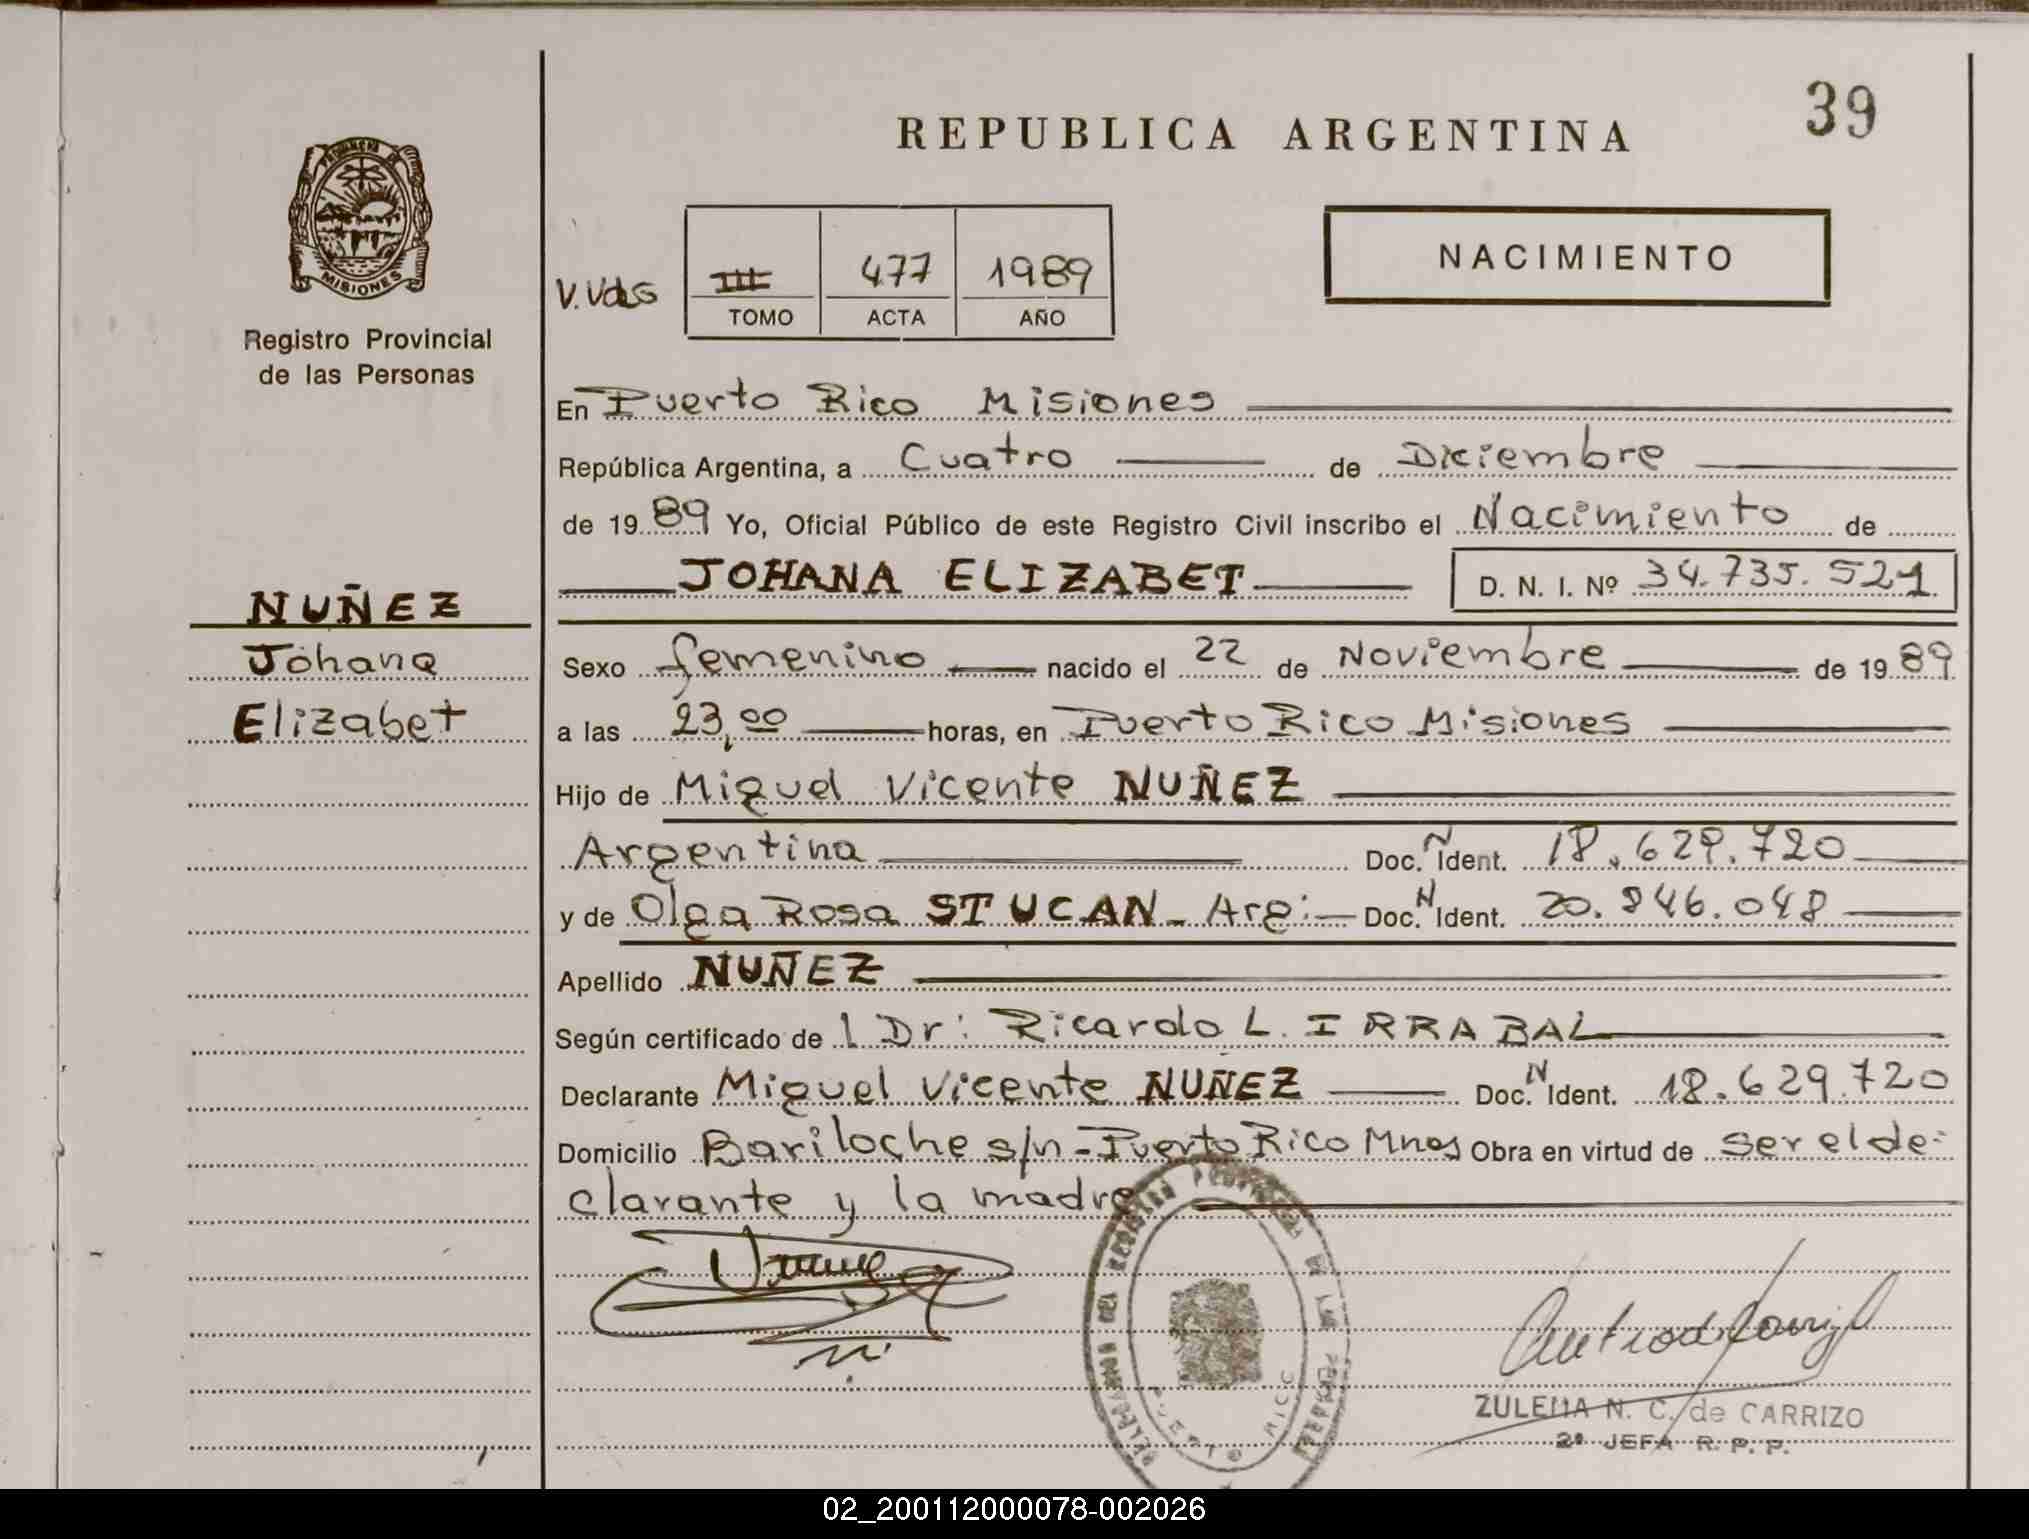 39
REPUBLICA ARGENTINA
PROVINCIA DE
MISIONES
Registro Provincial
de las Personas
V. Vdas
III 477 1989
TOMO ACTA AÑO
NACIMIENTO
En Puerto Rico Misiones
República Argentina, a Cuatro de Diciembre
de 1989 Yo, Oficial Público de este Registro Civil inscribo el Nacimiento de
JOHANA ELIZABET D. N. I. Nº 34.735.521
NUÑEZ
Johana
Elizabet
Sexo femenino nacido el 22 de Noviembre de 1989
a las 23,00 horas, en Puerto Rico Misiones
Hijo de Miguel Vicente NUÑEZ
Argentina Doc. N Ident. 18.629.720
y de Olga Rosa STUCAN - Arg: Doc. N Ident. 20.846.048
Apellido NUÑEZ
Según certificado de l Dr: Ricardo L. IRRABAL
Declarante Miguel Vicente NUÑEZ Doc. N Ident. 18.629.720
Domicilio Bariloche s/n - Puerto Rico Mnes Obra en virtud de ser el de-
clarante y la madre
ZULEMA N. C. de CARRIZO
2ª JEFA R. P. P.
02_200112000078-002026